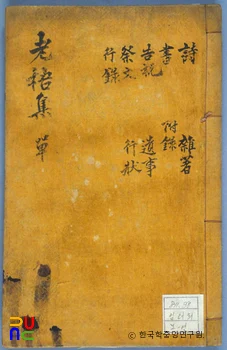 詩 雜著
書 附錄
告祝 遺事
祭文 行狀
行錄
老梧集 單
ⓒ 한국학중앙연구원